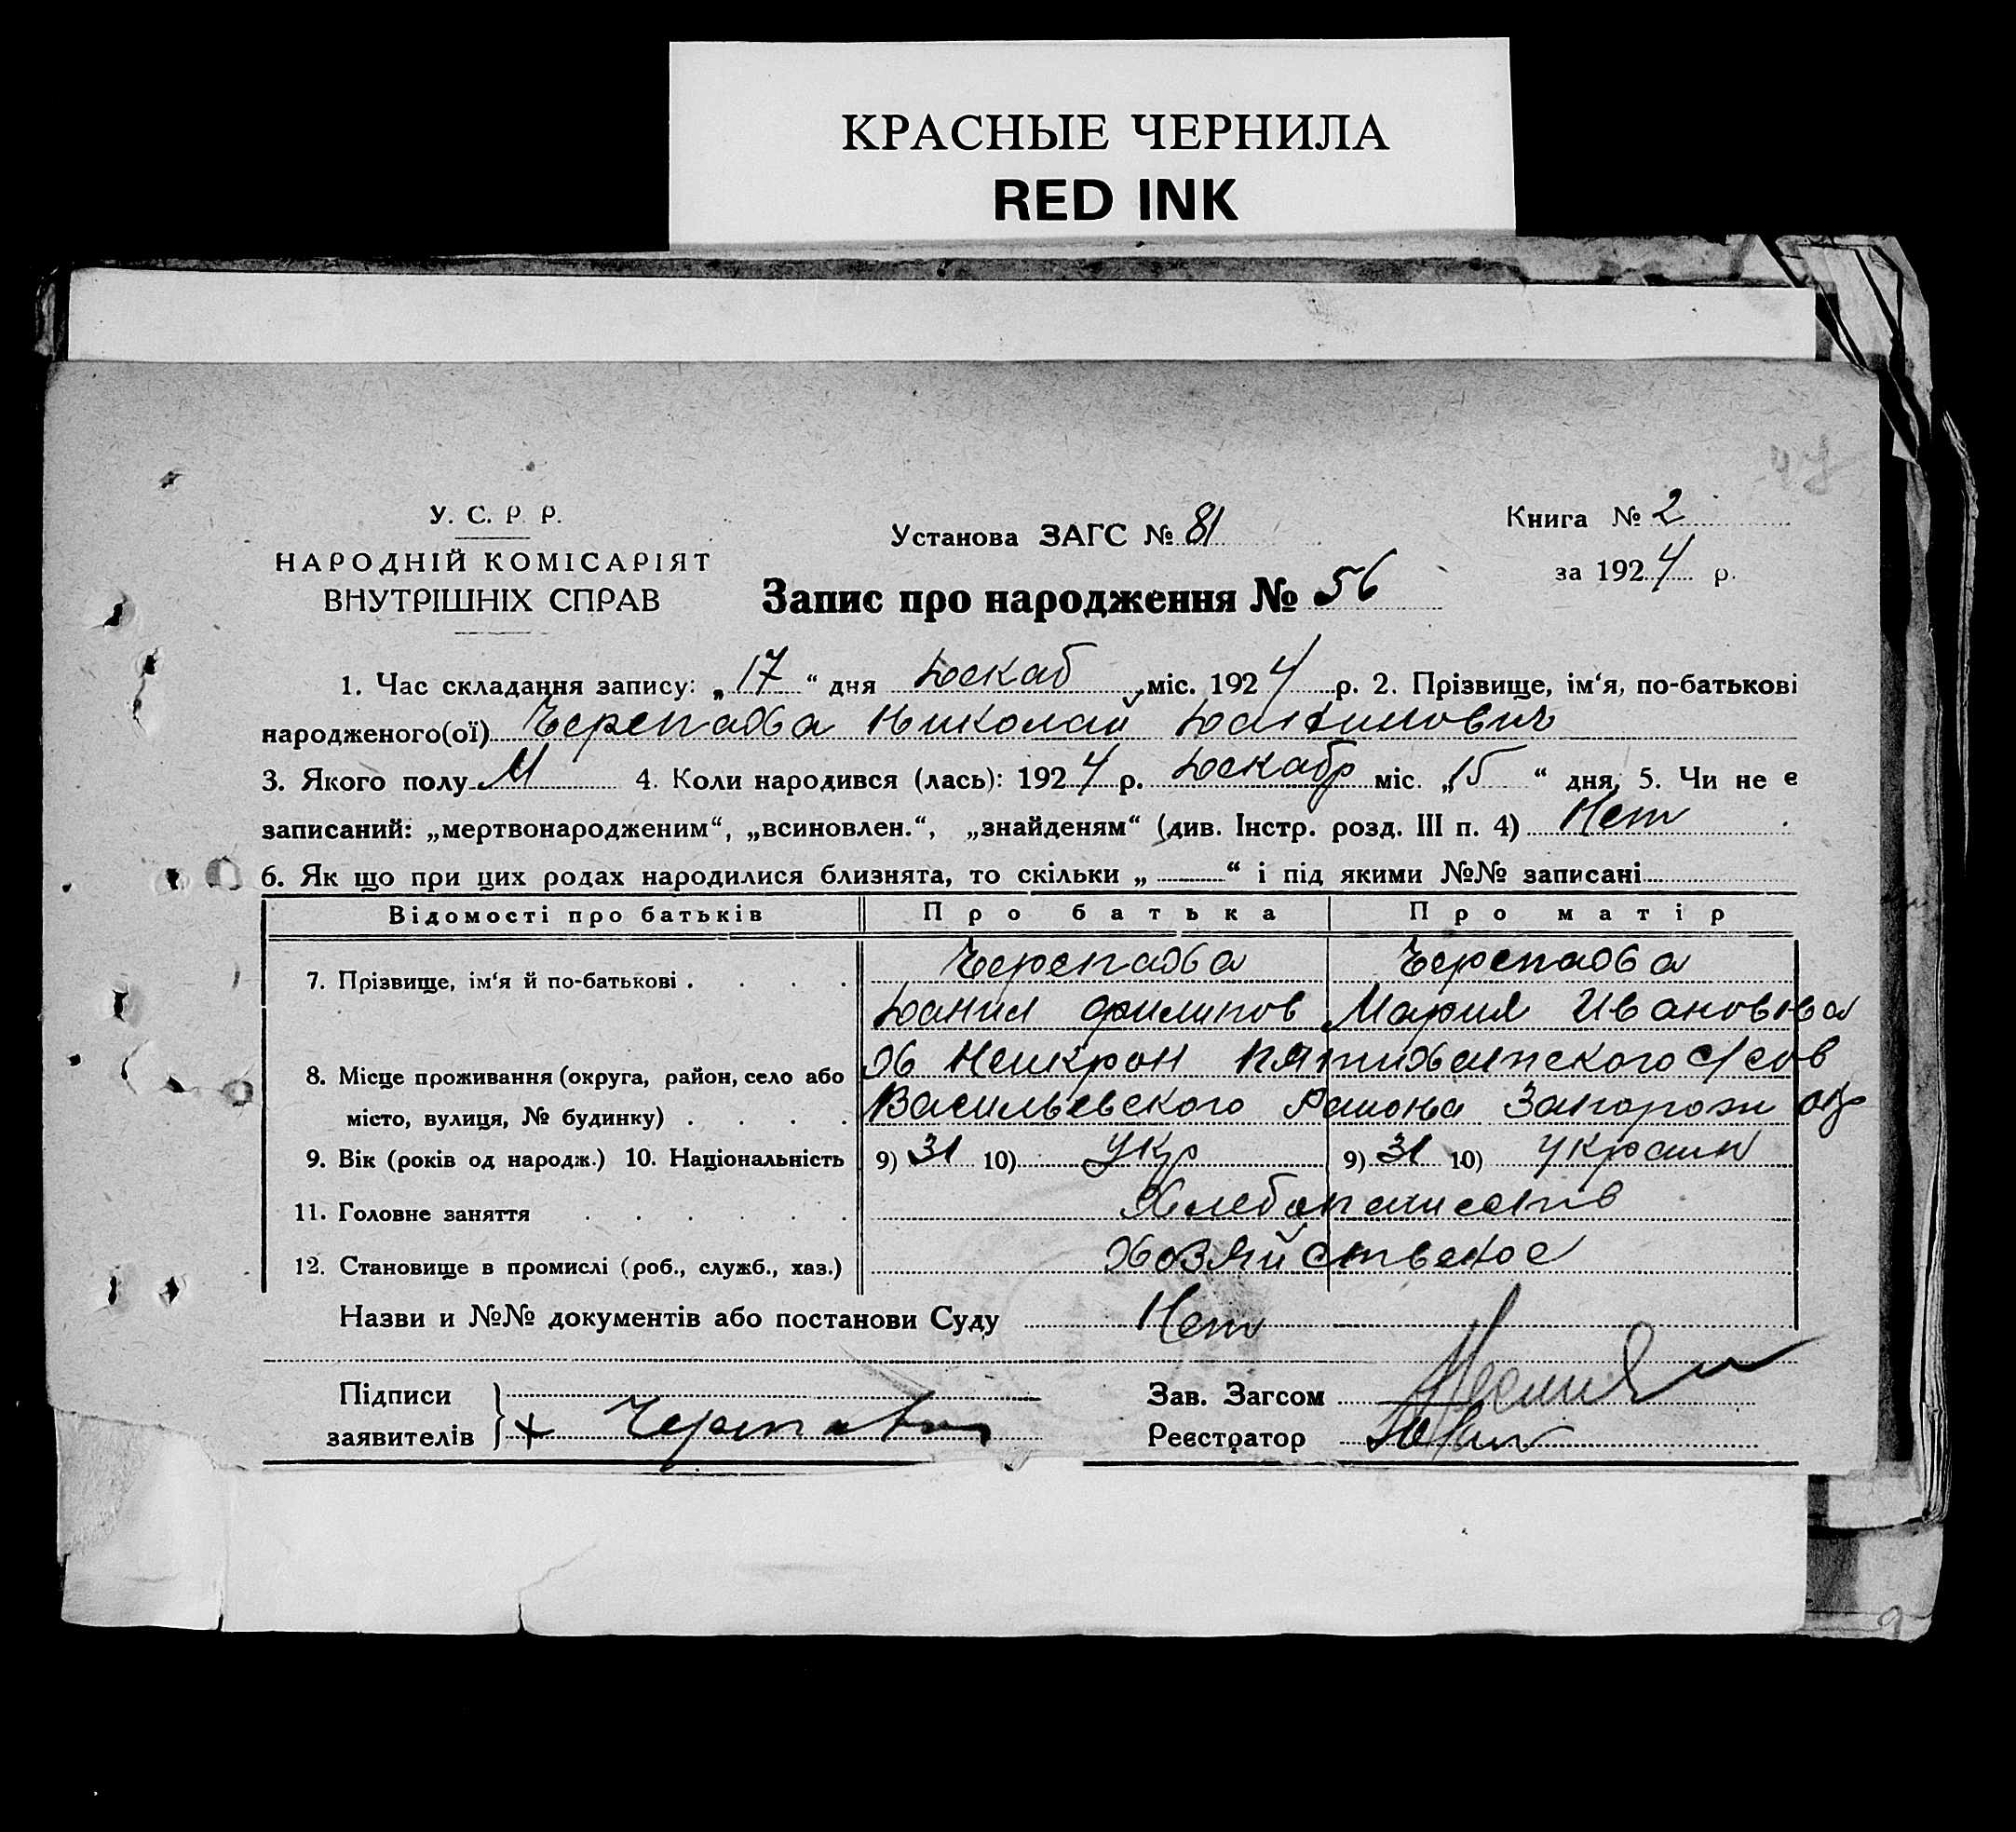 КРАСНЫЕ ЧЕРНИЛА
RED INK
У. С. Р. Р.
НАРОДНІЙ КОМІСАРІЯТ
ВНУТРІШНІХ СПРАВ
Установа ЗАГС № 81
Книга № 2
за 1924 р.
Запис про народження № 56
1. Час складання запису: „17“ дня Декаб міс. 1924 р. 2. Прізвище, ім'я, по-батькові
народженого(ої) Черепаха Николай Данилович
3. Якого полу М 4. Коли народився (лась): 1924 р. Декабр міс. „15“ дня, 5. Чи не є
записаний: „мертвонародженим“, „всиновлен.“, „знайденям“ (див. Інстр. розд. III п. 4) Нет
6. Як що при цих родах народилися близнята, то скільки „ “ і під якими №№ записані
Відомості про батьків Про батька Про матір
7. Прізвище, ім'я й по-батькові Черепаха Черепаха
Данил Филипов Мария Ивановна
8. Місце проживання (округа, район, село або Х Нейкрон Пятихатского с/сов
місто, вулиця, № будинку) Васильевского Района Запорож окр
9. Вік (років од народж.) 10. Національність 9) 31 10) Укр 9) 31 10) Украин
11. Головне заняття Хлебопашеств
12. Становище в промислі (роб., служб., хаз.) Хозяйственое
Назви и №№ документів або постанови Суду Нет
Підписи
заявителів + Черепаха
Зав. Загсом
Реєстратор